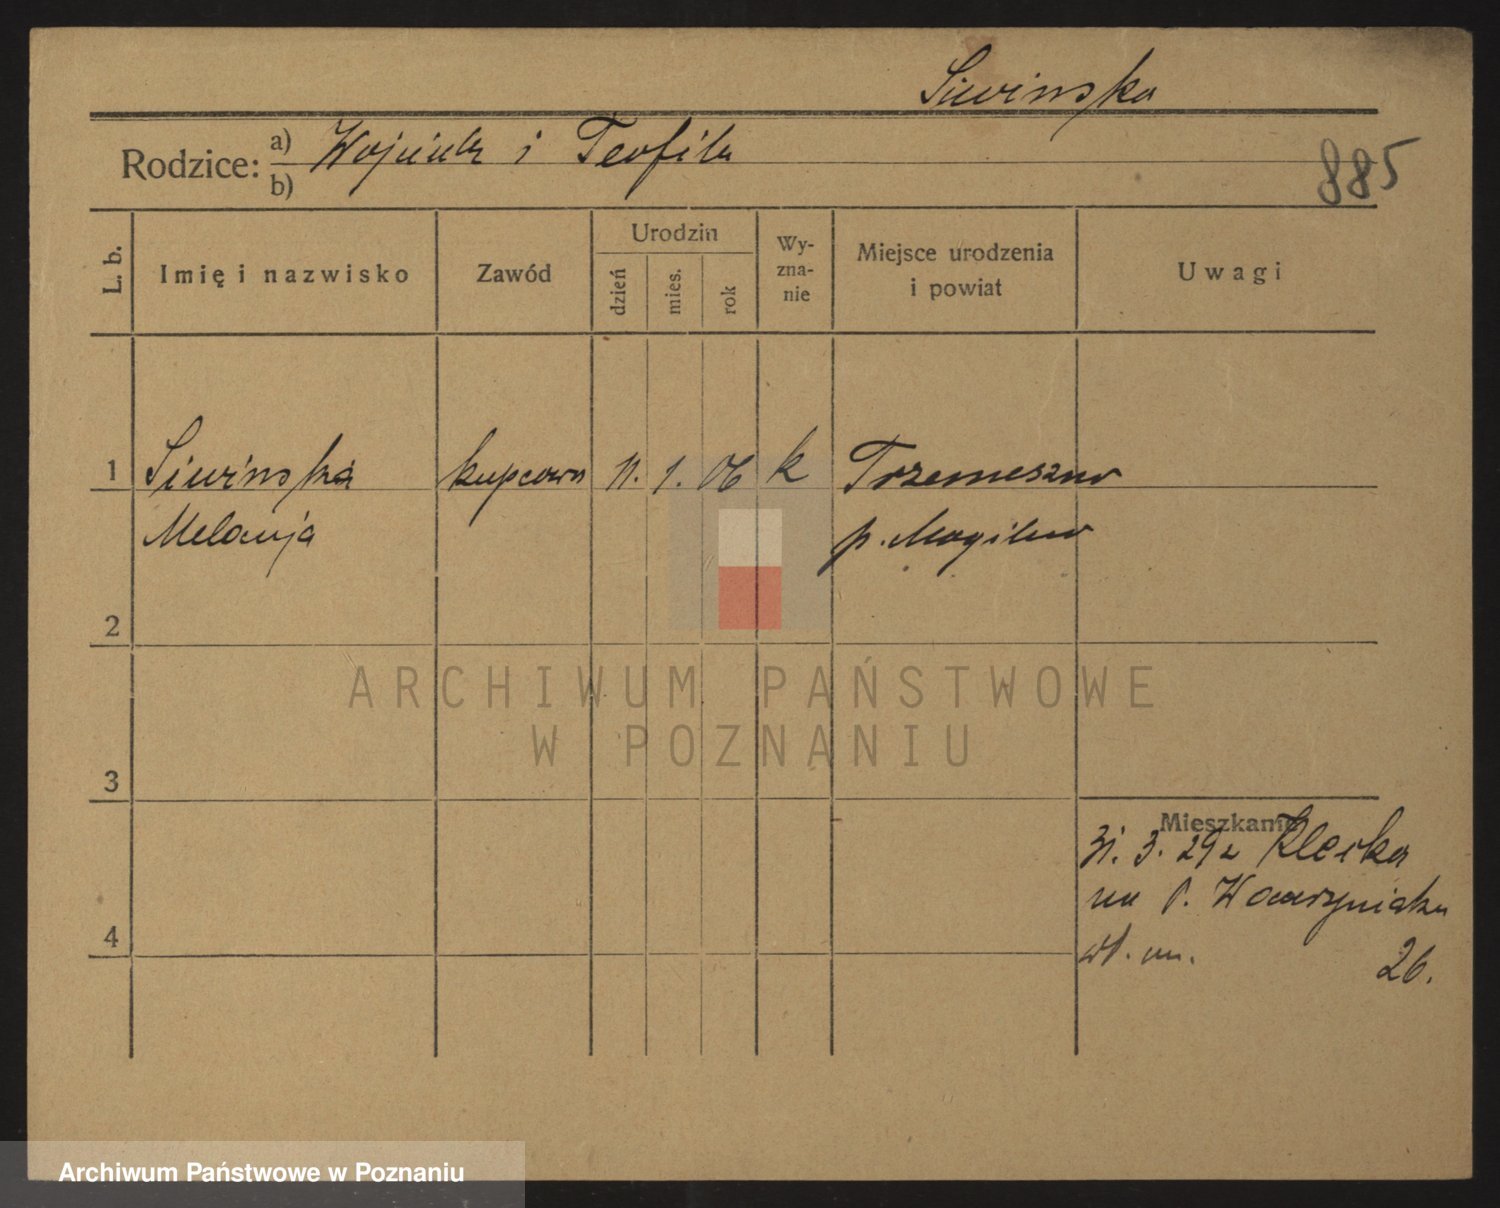 Siwinska
Rodzice: a) Wojciech i Teofila
b)
885
L. b.
Imię i nazwisko
Zawód
Urodzin
dzień
mies.
rok
Wy-
zna-
nie
Miejsce urodzenia
i powiat
Uwagi
1 Siwinska kupcowa 11. 1. 06 k Trzemeszno
Melanja p. Mogilno
2
ARCHIWUM PAŃSTWOWE
W POZNANIU
3
Mieszkanie
31. 3. 29 z Klecka
na P. Wawrzyniaka
26.
4
Archiwum Państwowe w Poznaniu